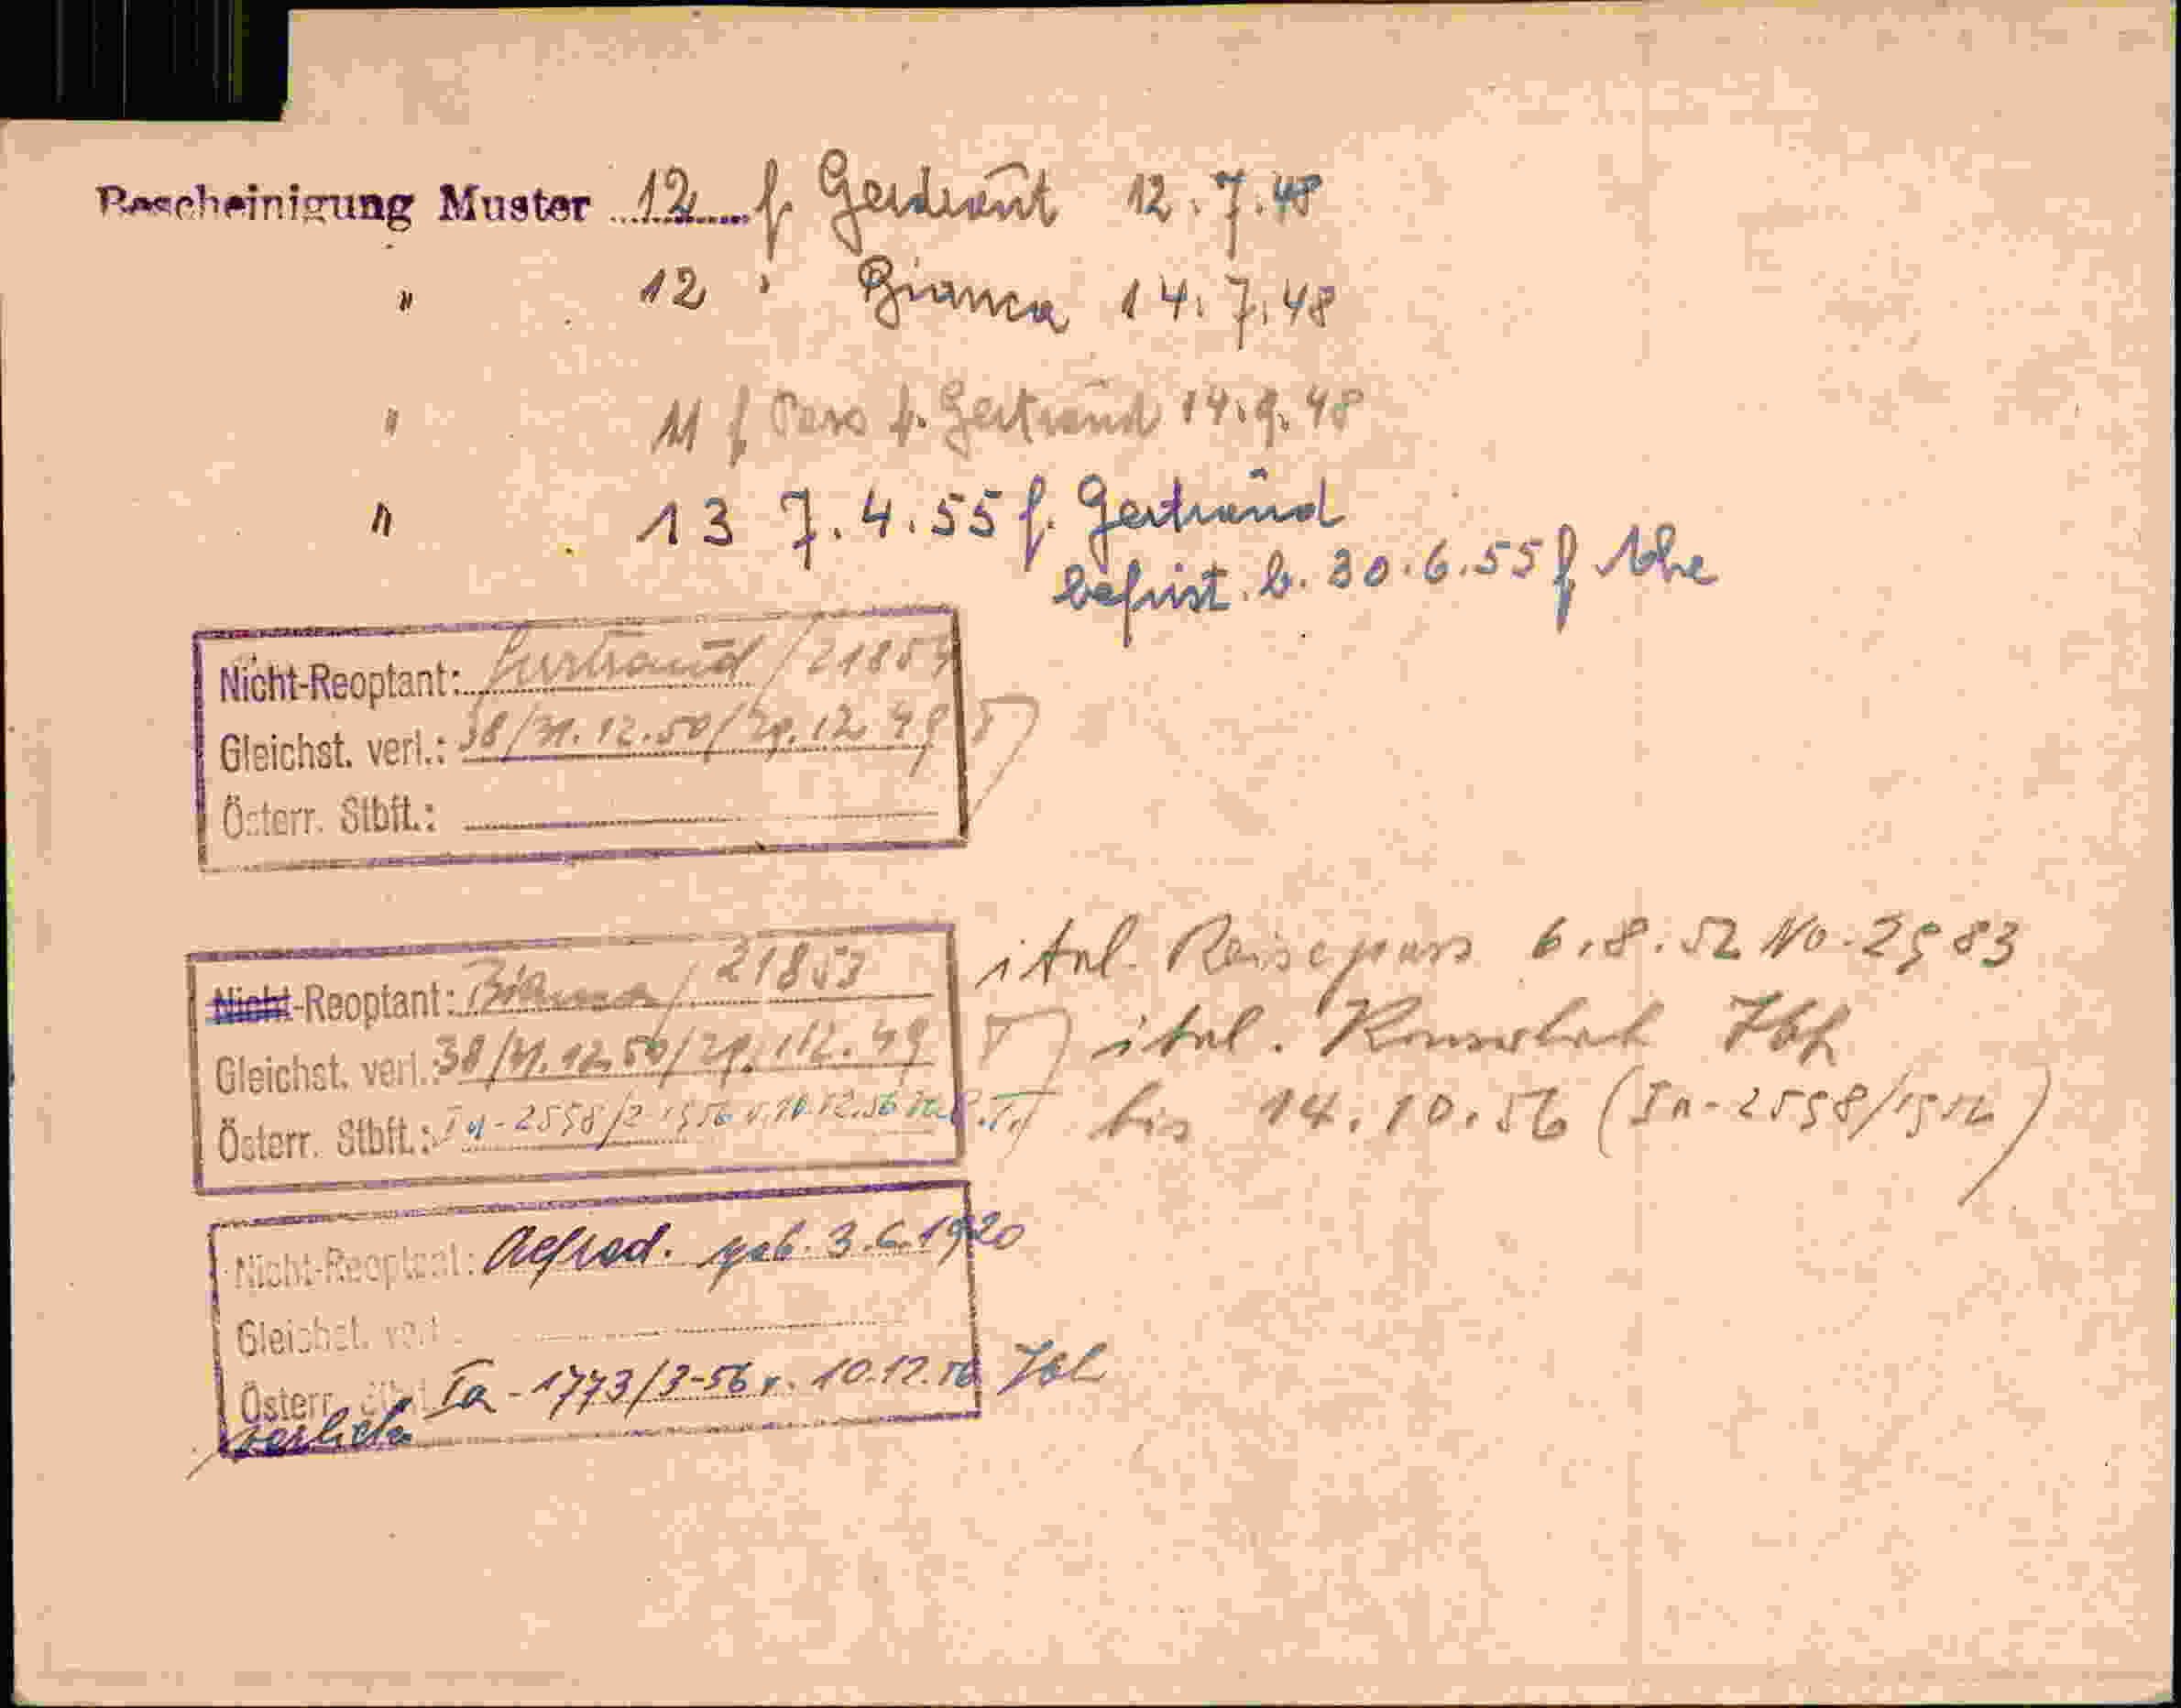 Bescheinigung Muster 12 f. Gertraut 12.7.48
" 12 " Bianca 14.7.48
" 11 f Pass f. Gertraud 14.9.48
" 13 7.4.55 f. Gertraud
befrist. b. 30.6.55 f
Nicht-Reoptant: Gertraud / 21854
Gleichst. verl.: 38/31.12.50/29.12.49
Österr. Stbft.:
Nicht-Reoptant: Bianca / 21853
Gleichst. verl.: 38/31.12.50/29.12.49
Österr. Stbft.: Ia-2598/2-1956 v. 10.12.56
ital. Reisepass 6.8.52 No. 2983
ital. Konsulat Ibk
bis 14.10.56 (Ia-2598/1956)
Nicht-Reoptant: Alfred. geb. 3.6.1920
Gleichst. verl.
Österr. Stbft. Ia-1773/3-56 v. 10.12.56 Ibk
verlieh